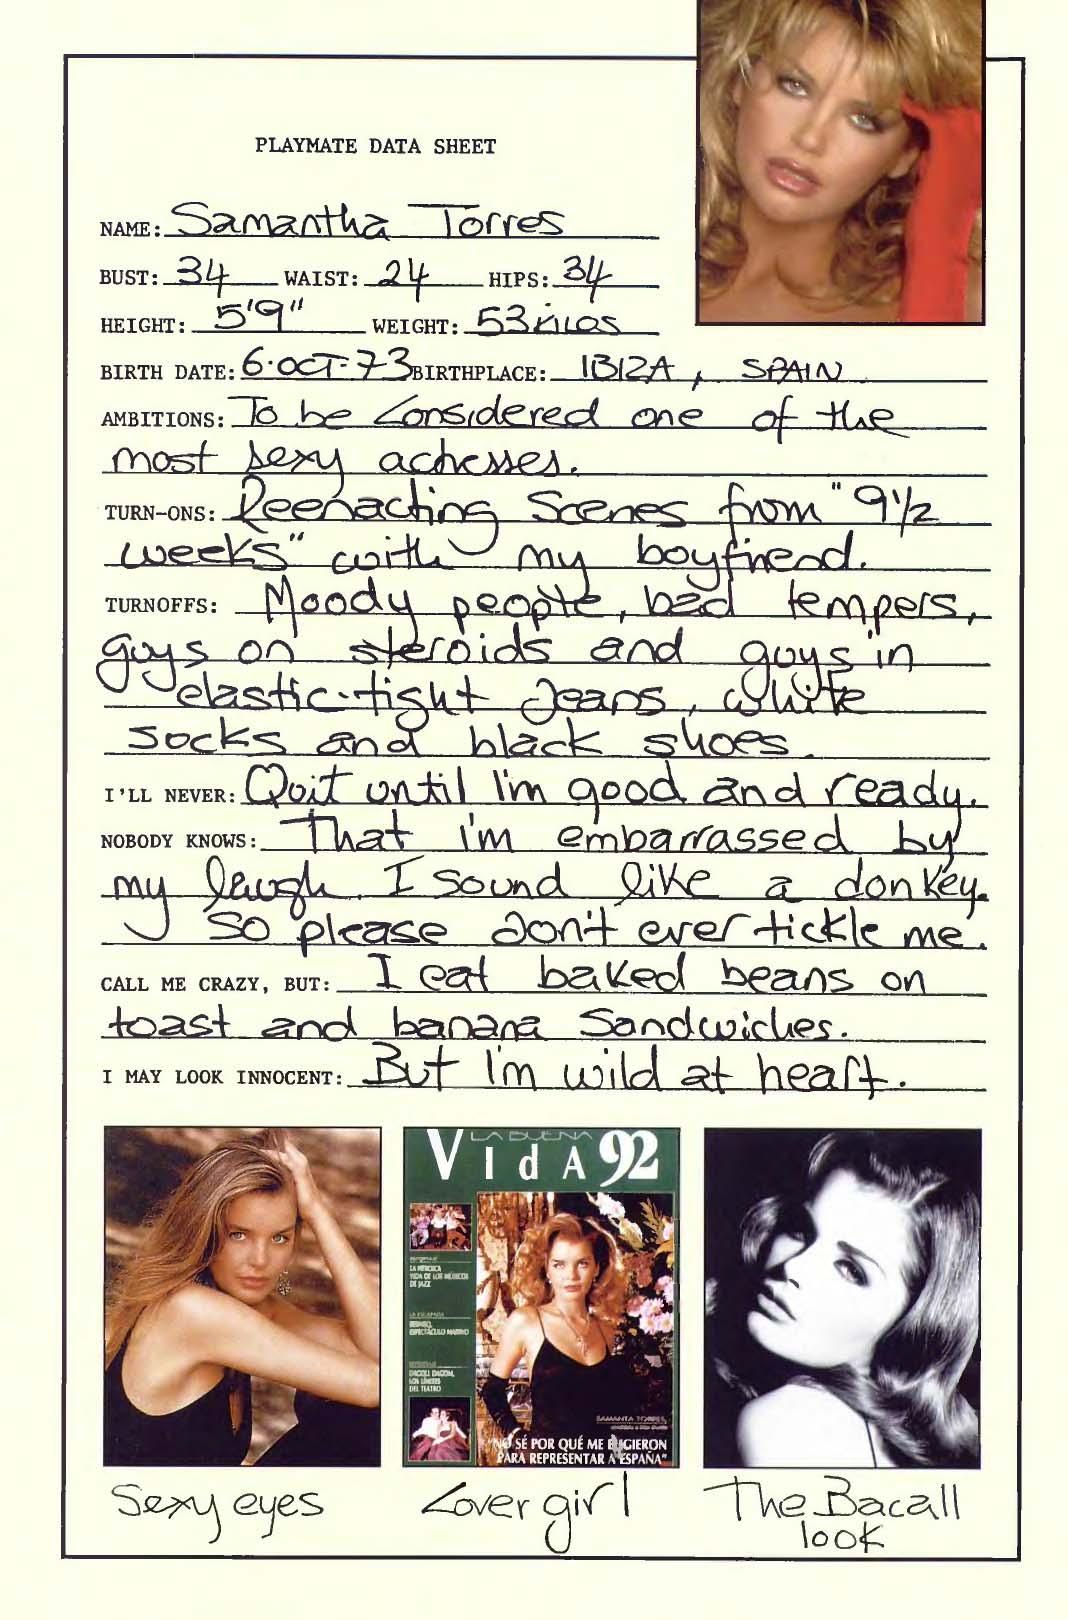 PLAYMATE DATA SHEET
NAME: Samantha Torres
BUST: 34 WAIST: 24 HIPS: 34
HEIGHT: 5'9" WEIGHT: 53 kilos
BIRTH DATE: 6·OCT·73 BIRTHPLACE: IBIZA, SPAIN
AMBITIONS: To be considered one of the
most sexy actresses.
TURN-ONS: Reenacting Scenes from "9½
weeks" with my boyfriend.
TURNOFFS: Moody people, bad tempers,
guys on steroids and guys in
elastic-tight jeans, white
socks and black shoes.
I'LL NEVER: Quit until I'm good and ready.
NOBODY KNOWS: That I'm embarrassed by
my laugh. I sound like a donkey.
So please don't ever tickle me.
CALL ME CRAZY, BUT: I eat baked beans on
toast and banana Sandwiches.
I MAY LOOK INNOCENT: But I'm wild at heart.
LA BUENA
VIdA 92
LA HEROICA
VIDA DE LOS MÚSICOS
DE JAZZ
ESPECTÁCULO MARINO
DAGOLL DAGOM,
LOS LÍMITES
DEL TEATRO
SAMANTA TORRES,
"NO SÉ POR QUÉ ME ELIGIERON
PARA REPRESENTAR A ESPAÑA"
Sexy eyes
Cover girl
The Bacall
look